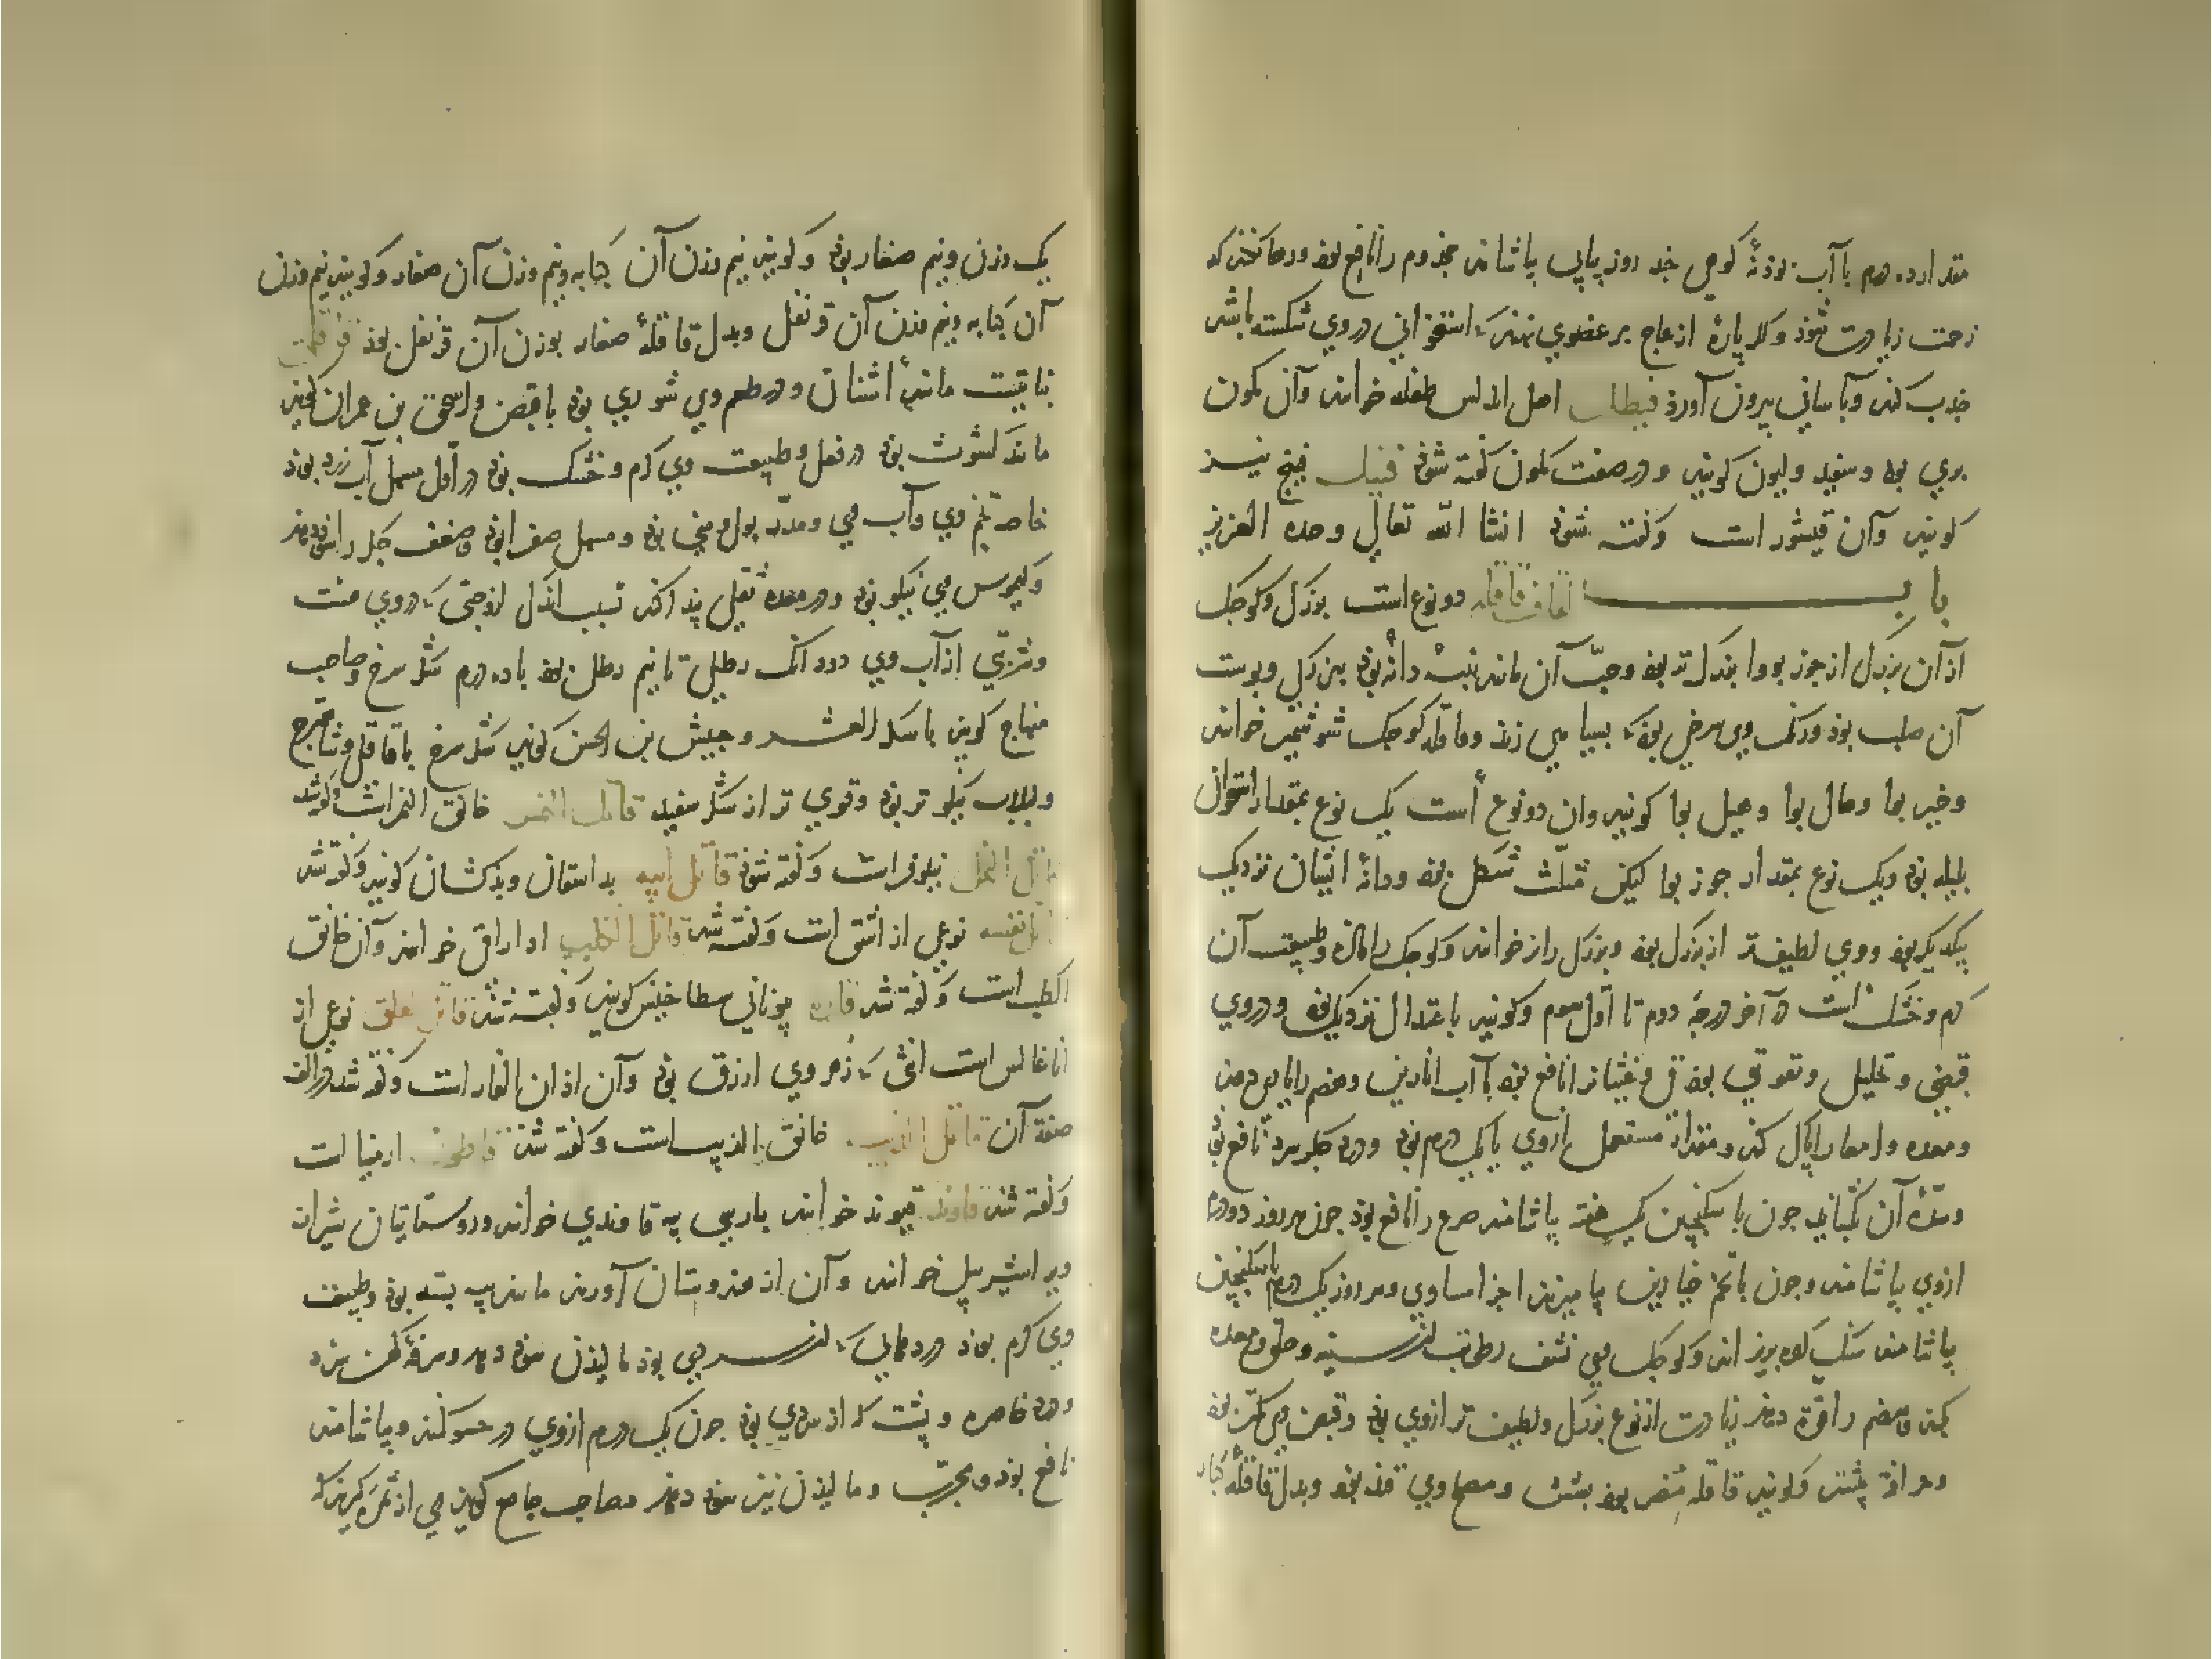 مقدار ده درم با آب بوذنهٔ کوهی جند روز پیاپی بیاشامند مجذوم را نافع بوذ و رها نکنذ که
زحمت زیادت شوذ و کر پارهٔ از عاج بر عضوی نهند که استخوانی در وی شکسته باشد
جذب کند و بآسانی بیرون آورد فیطل اهل اندلس طفله خوانند و آن کمون
بری بوذ و سفید و لبون کویند و در صفت کمون کفته شوذ فنیل فینج نیز
کویند و آن قیشور است و کفته شوذ انشا الله تعالی وحده العزیز
باب القاف قاقله دو نوع است بزرک و کوجک
از آن بزرک از جوز بوا بزرکتر بوذ و حب آن مانند پنبه دانه بوذ ببزرکی و پوست
آن صلب بوذ و رنک وی سرخی بوذ که بسیاهی زند و قاقله کوجک شوشمیر خوانند
و خیر بوا و هال بوا و هیل بوا کویند و ان دو نوع است یک نوع بمقدار استخوان
بلیله بوذ و یک نوع بمقدار جوز بوا لیکن مثلث شکل بوذ و دانهٔ ایشان نزدیک
یکدیکر بوذ و وی لطیف‌تر از بزرک بوذ و بزرک را نر خوانند و کوجک را ماده و طبیعت آن
کرم و خشک است در آخر درجه دوم تا اول سوم و کویند باعتدال نزدیک بوذ و در وی
قبضی و تحلیل و تقویتی بوذ قی و غثیان را نافع بوذ با آب انارین و هضم را یاری دهد
و معده و امعا را پاک کند و مقدار مستعمل ازوی یک درم بوذ و درد جکر سرد نافع بوذ
و سدهٔ آن بکشاید جون با سکنجبین یک هفته بیاشامند صرع را نافع بوذ جون هر روز دو درم
ازوی بیاشامند و جون با تخم خیارین بیامیزند اجزا مساوی و هر روز یک درم با سکنجبین
بیاشامند سنک کرده بریزاند و کوجک وی نشف رطوبت لزج سینه و حلق و معده
بکند و هضم را قوة دهد زیادت از نوع بزرک و لطیف‌تر ازوی بوذ و قبض وی کمتر بوذ
و حرارت بیشتر و کویند قاقله مضر بوذ بشش و مصلح وی قند بوذ و بدل قاقلهٔ کبار
یک وزن و نیم صغار بوذ و کویند نیم وزن آن کبابه و نیم وزن آن صغار و کویند نیم وزن
آن کبابه و نیم وزن آن قرنفل و بدل قاقلهٔ صغار بوزن آن قرنفل بوذ
نباتیست مانند اشنان و در طعم وی شوری بوذ با قبض و اسحق بن عمران کوید
مانند کشوث بوذ در فعل و طبیعت وی کرم و خشک بوذ در اول مسهل آب زرد بوذ
خاصه تخم وی و آب وی و مدر بول و منی بوذ و مسهل صفرا بوذ و ضعف جکر را سوذ دهد
و کیموس وی نیکو بوذ و در معده ثقلی پیدا کند بسبب اندک لزوجتی که در وی هست
و شربتی از آب وی دو دانک رطلی تا نیم رطل بوذ با ده درم شکر سرخ و صاحب
منهاج کوید با سکر العشر و حبیش بن الحسن کوید شکر سرخ با قاقلی و شاهترج
و لبلاب نیکوتر بوذ و قوی تر از شکر سفید قاتل النمر خانق النمر است و کفته شد
قاتل النحل نیلوفر است و کفته شوذ قاتل ابیه بداسقان و بدکشان کویند و کفته شد
قاتل نفسه نوعی از اشق است و کفته شد قاتل الکلب اداراقی خوانند و آن خانق
الکلب است و کفته شد یونانی کویند و کفته شد قاتل العلق نوعی از
اناغالس است انثی که زهر وی ازرق بوذ و آن اذان الفار است و کفته شد در الف
صفة آن قاتل الذیب خانق الذیب است و کفته شد ارمینا است
و کفته شد قاوند قیوند خوانند بارسی پیه قاوندی خوانند و روستاییان شیراز
ویرا شیر پیل خوانند و آن از هندوستان آورند مانند پیه بسته بوذ و طبیعت
وی کرم بوذ دردهایی که از سردی بوذ مالیذن سوذ دهد و سرفهٔ کهن ببرد
و درد خاصره و پشت که از سردی بوذ جون یک درم ازوی در حسو کنند و بیاشامند
نافع بوذ و مجرب و مالیذن نیز سوذ دهد صاحب جامع کوید وی از ثمر کیرند که